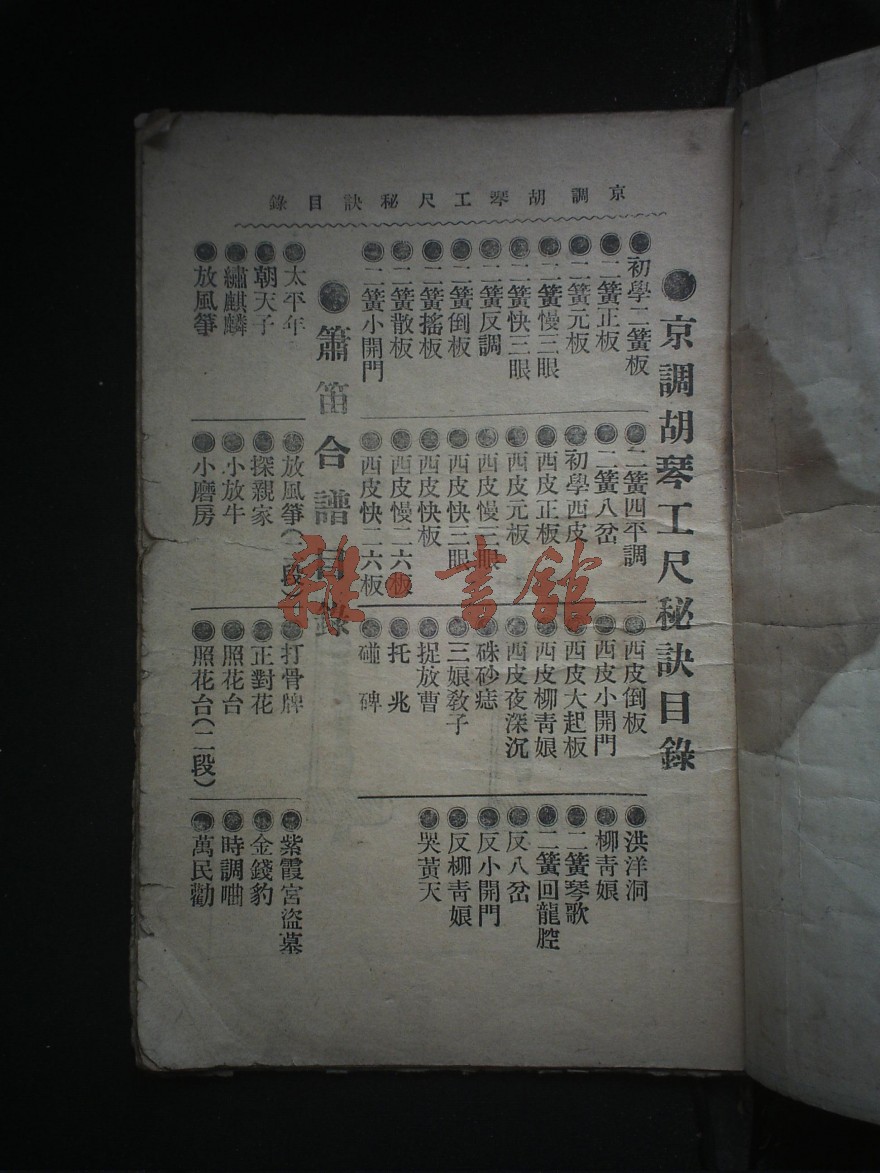 京調胡琴工尺秘訣目錄
京調胡琴工尺秘訣目錄
初學二簧板
二簧正板
二簧元板
二簧慢三眼
二簧快三眼
二簧反調
二簧倒板
二簧搖板
二簧散板
二簧小開門
二簧四平調
二簧八岔
初學西皮
西皮正板
西皮元板
西皮慢三眼
西皮快三眼
西皮快板
西皮慢二六板
西皮快二六板
西皮倒板
西皮小開門
西皮大起板
西皮柳青娘
西皮夜深沉
硃砂痣
三娘教子
捉放曹
托兆
碰碑
洪洋洞
柳青娘
二簧琴歌
二簧回龍腔
反八岔
反小開門
反柳青娘
哭黃天
簫笛合譜目錄
太平年
朝天子
繡麒麟
放風箏
放風箏(二段)
探親家
小放牛
小磨房
打骨牌
正對花
照花台
照花台(二段)
紫霞宮盜墓
金錢豹
時調唒
萬民勸
雜·書館